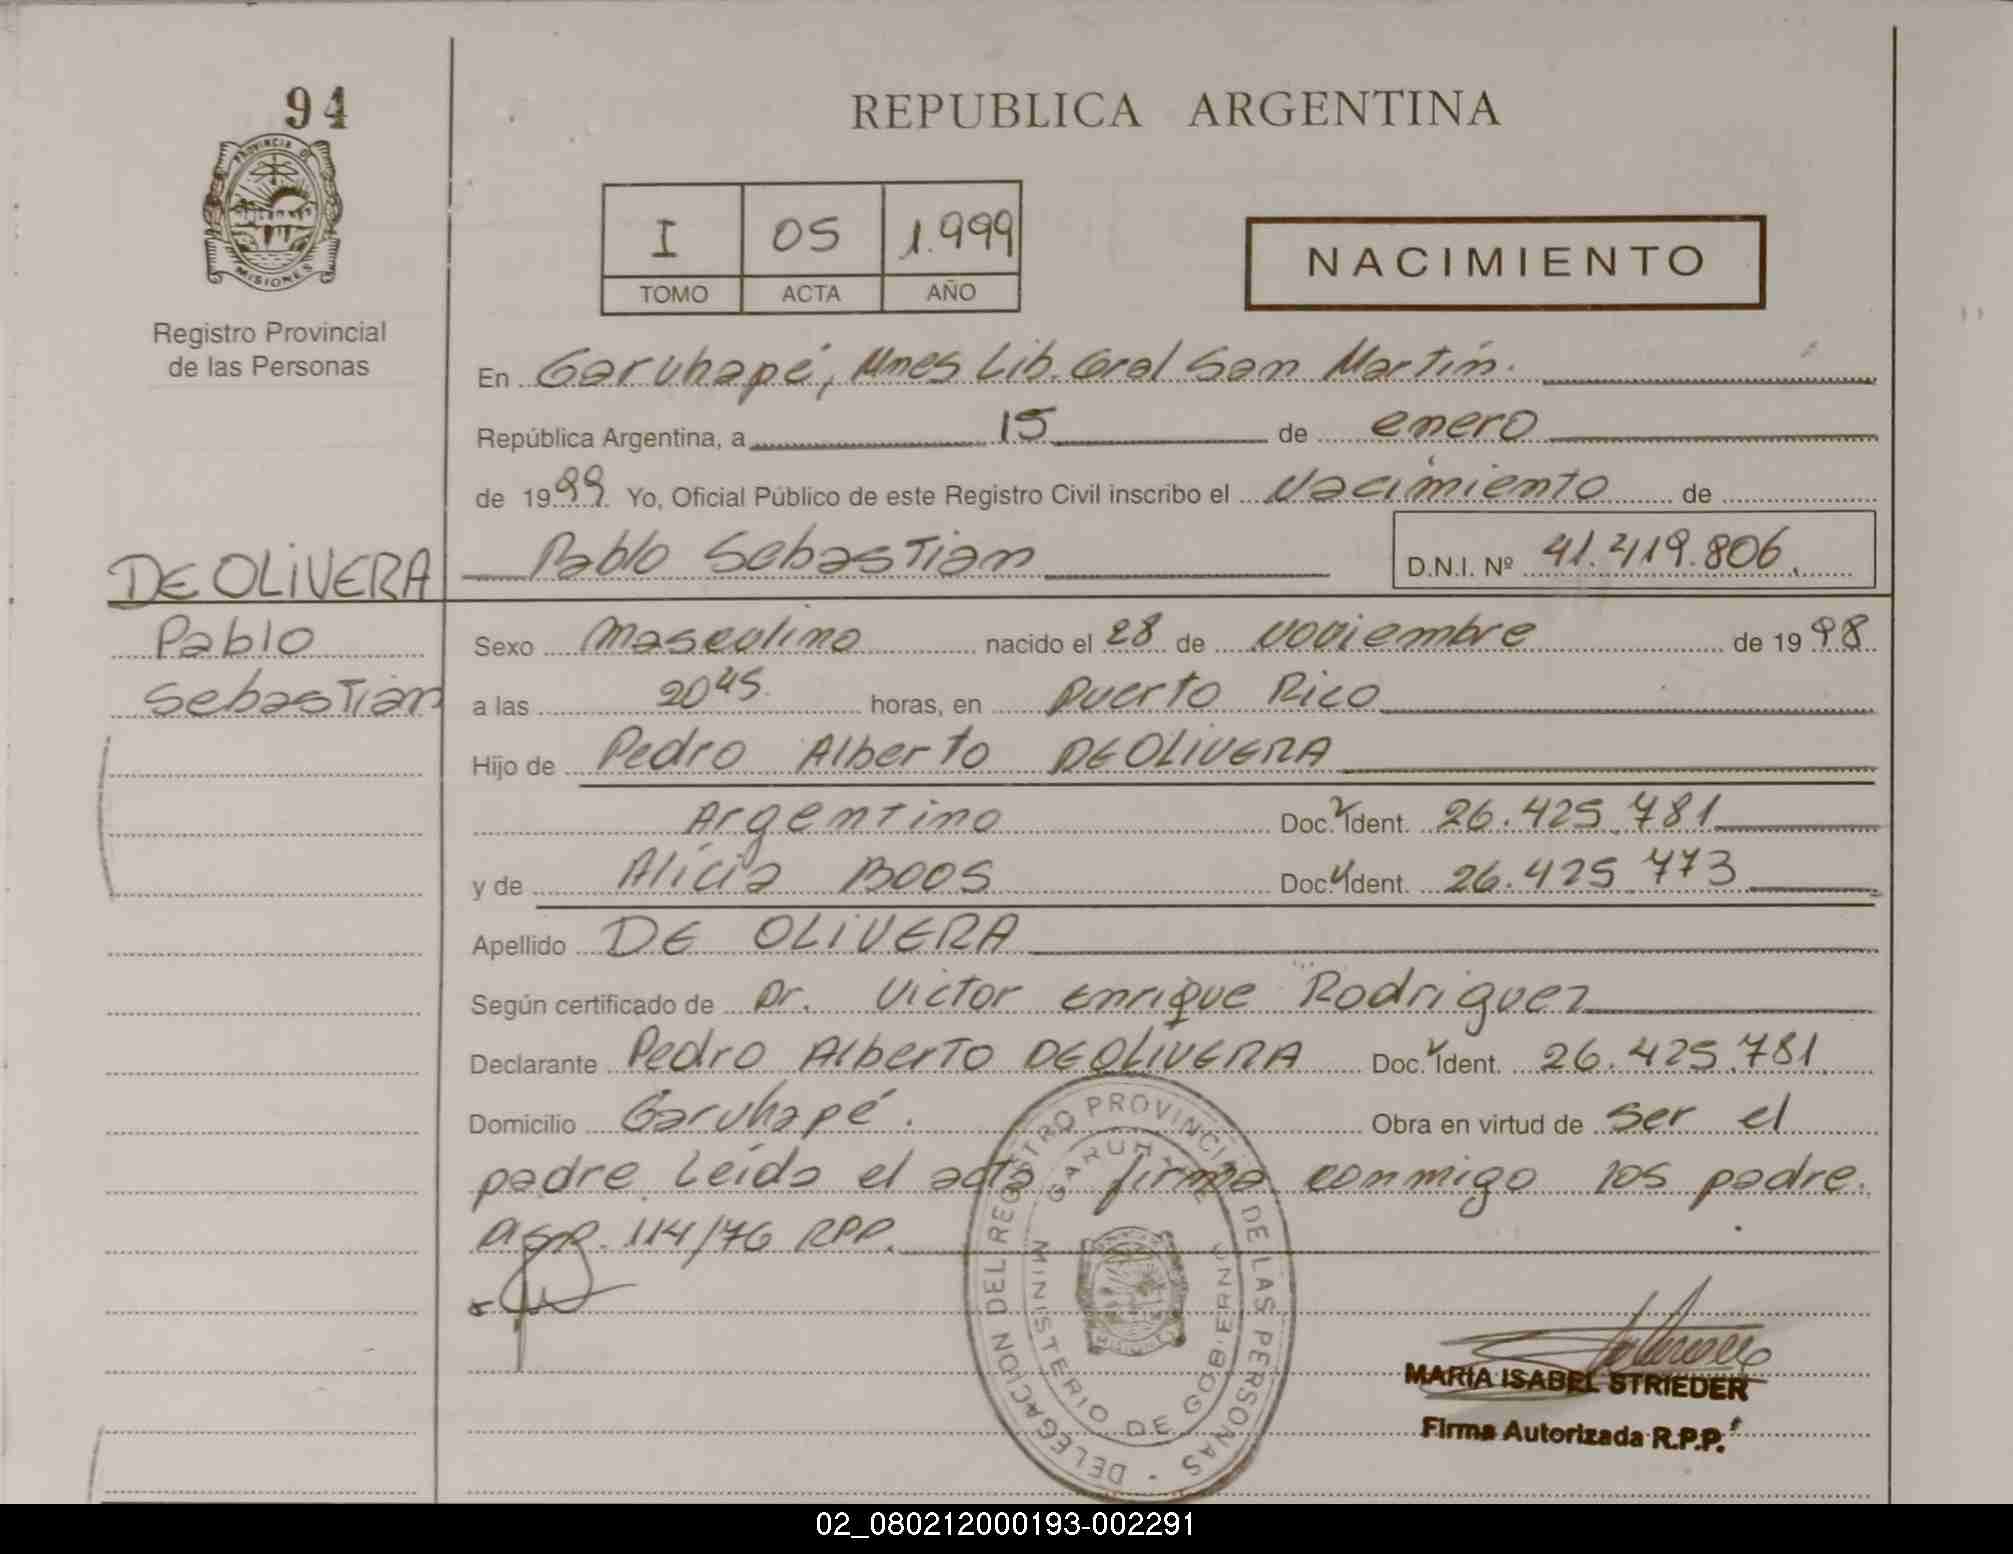 94
PROVINCIA DE
MISIONES
Registro Provincial
de las Personas
REPUBLICA ARGENTINA
I 05 1.999
TOMO ACTA AÑO
NACIMIENTO
En Garuhapé, Mnes Lib. Gral San Martín.
República Argentina, a 15 de enero
de 1999 Yo, Oficial Público de este Registro Civil inscribo el Nacimiento de
Pablo Sebastian D.N.I. Nº 41.419.806
DE OLIVERA
Pablo
Sebastián
Sexo Masculino nacido el 28 de noviembre de 1998
a las 20 45 horas, en Puerto Rico
Hijo de Pedro Alberto DE OLIVERA
Argentino Doc. Ident. 26.425.781
y de Alicia BOOS Doc. Ident. 26.425.773
Apellido DE OLIVERA
Según certificado de Dr. Victor Enrique Rodriguez
Declarante Pedro Alberto DE OLIVERA Doc. Ident. 26.425.781
Domicilio Garuhapé. Obra en virtud de ser el
padre Leída el acta firma conmigo los padre.
114/76 RPP.
DELEGACION DEL REGISTRO PROVINCIAL DE LAS PERSONAS
MINISTERIO DE GOBIERNO
MARIA ISABEL STRIEDER
Firma Autorizada R.P.P.
02_080212000193-002291